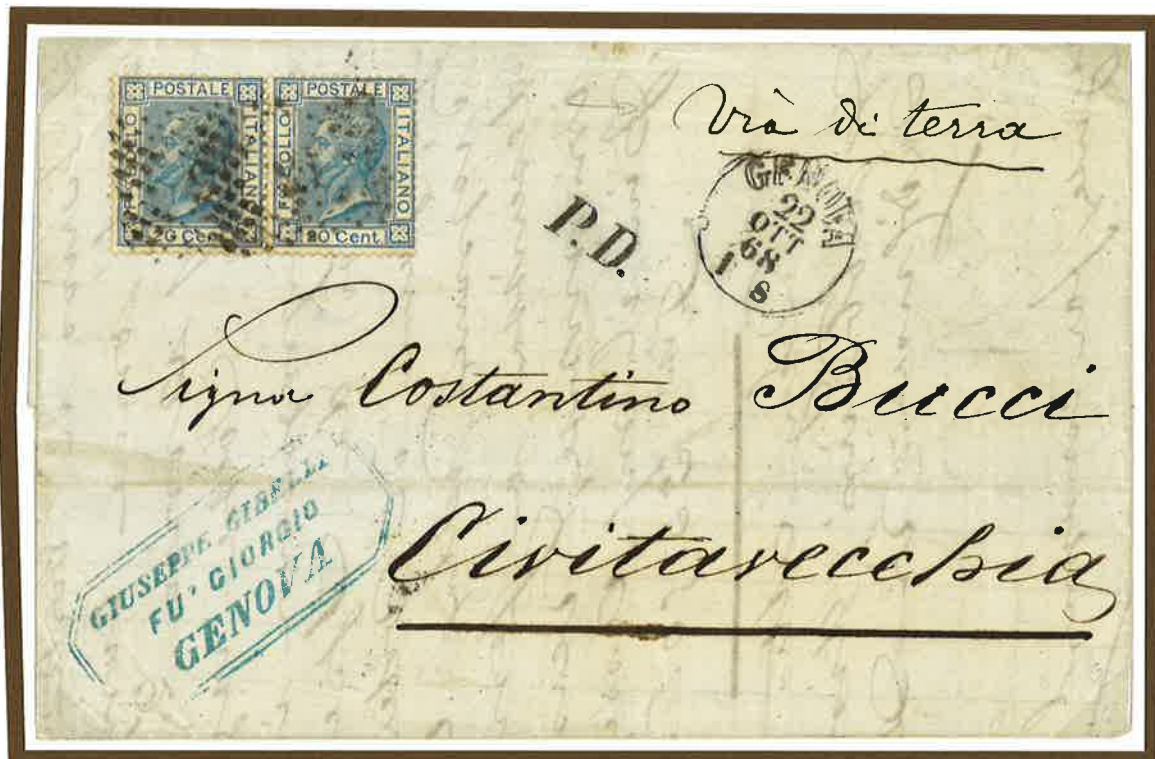 POSTALE
FRANCOBOLLO
ITALIANO
20 Cent.
POSTALE
FRANCOBOLLO
ITALIANO
20 Cent.
Vià di terra
GENOVA
22
OTT
68
1 S
P.D.
Costantino Bucci
Civitavecchia
GIUSEPPE GIBELLI
FU' GIORGIO
GENOVA